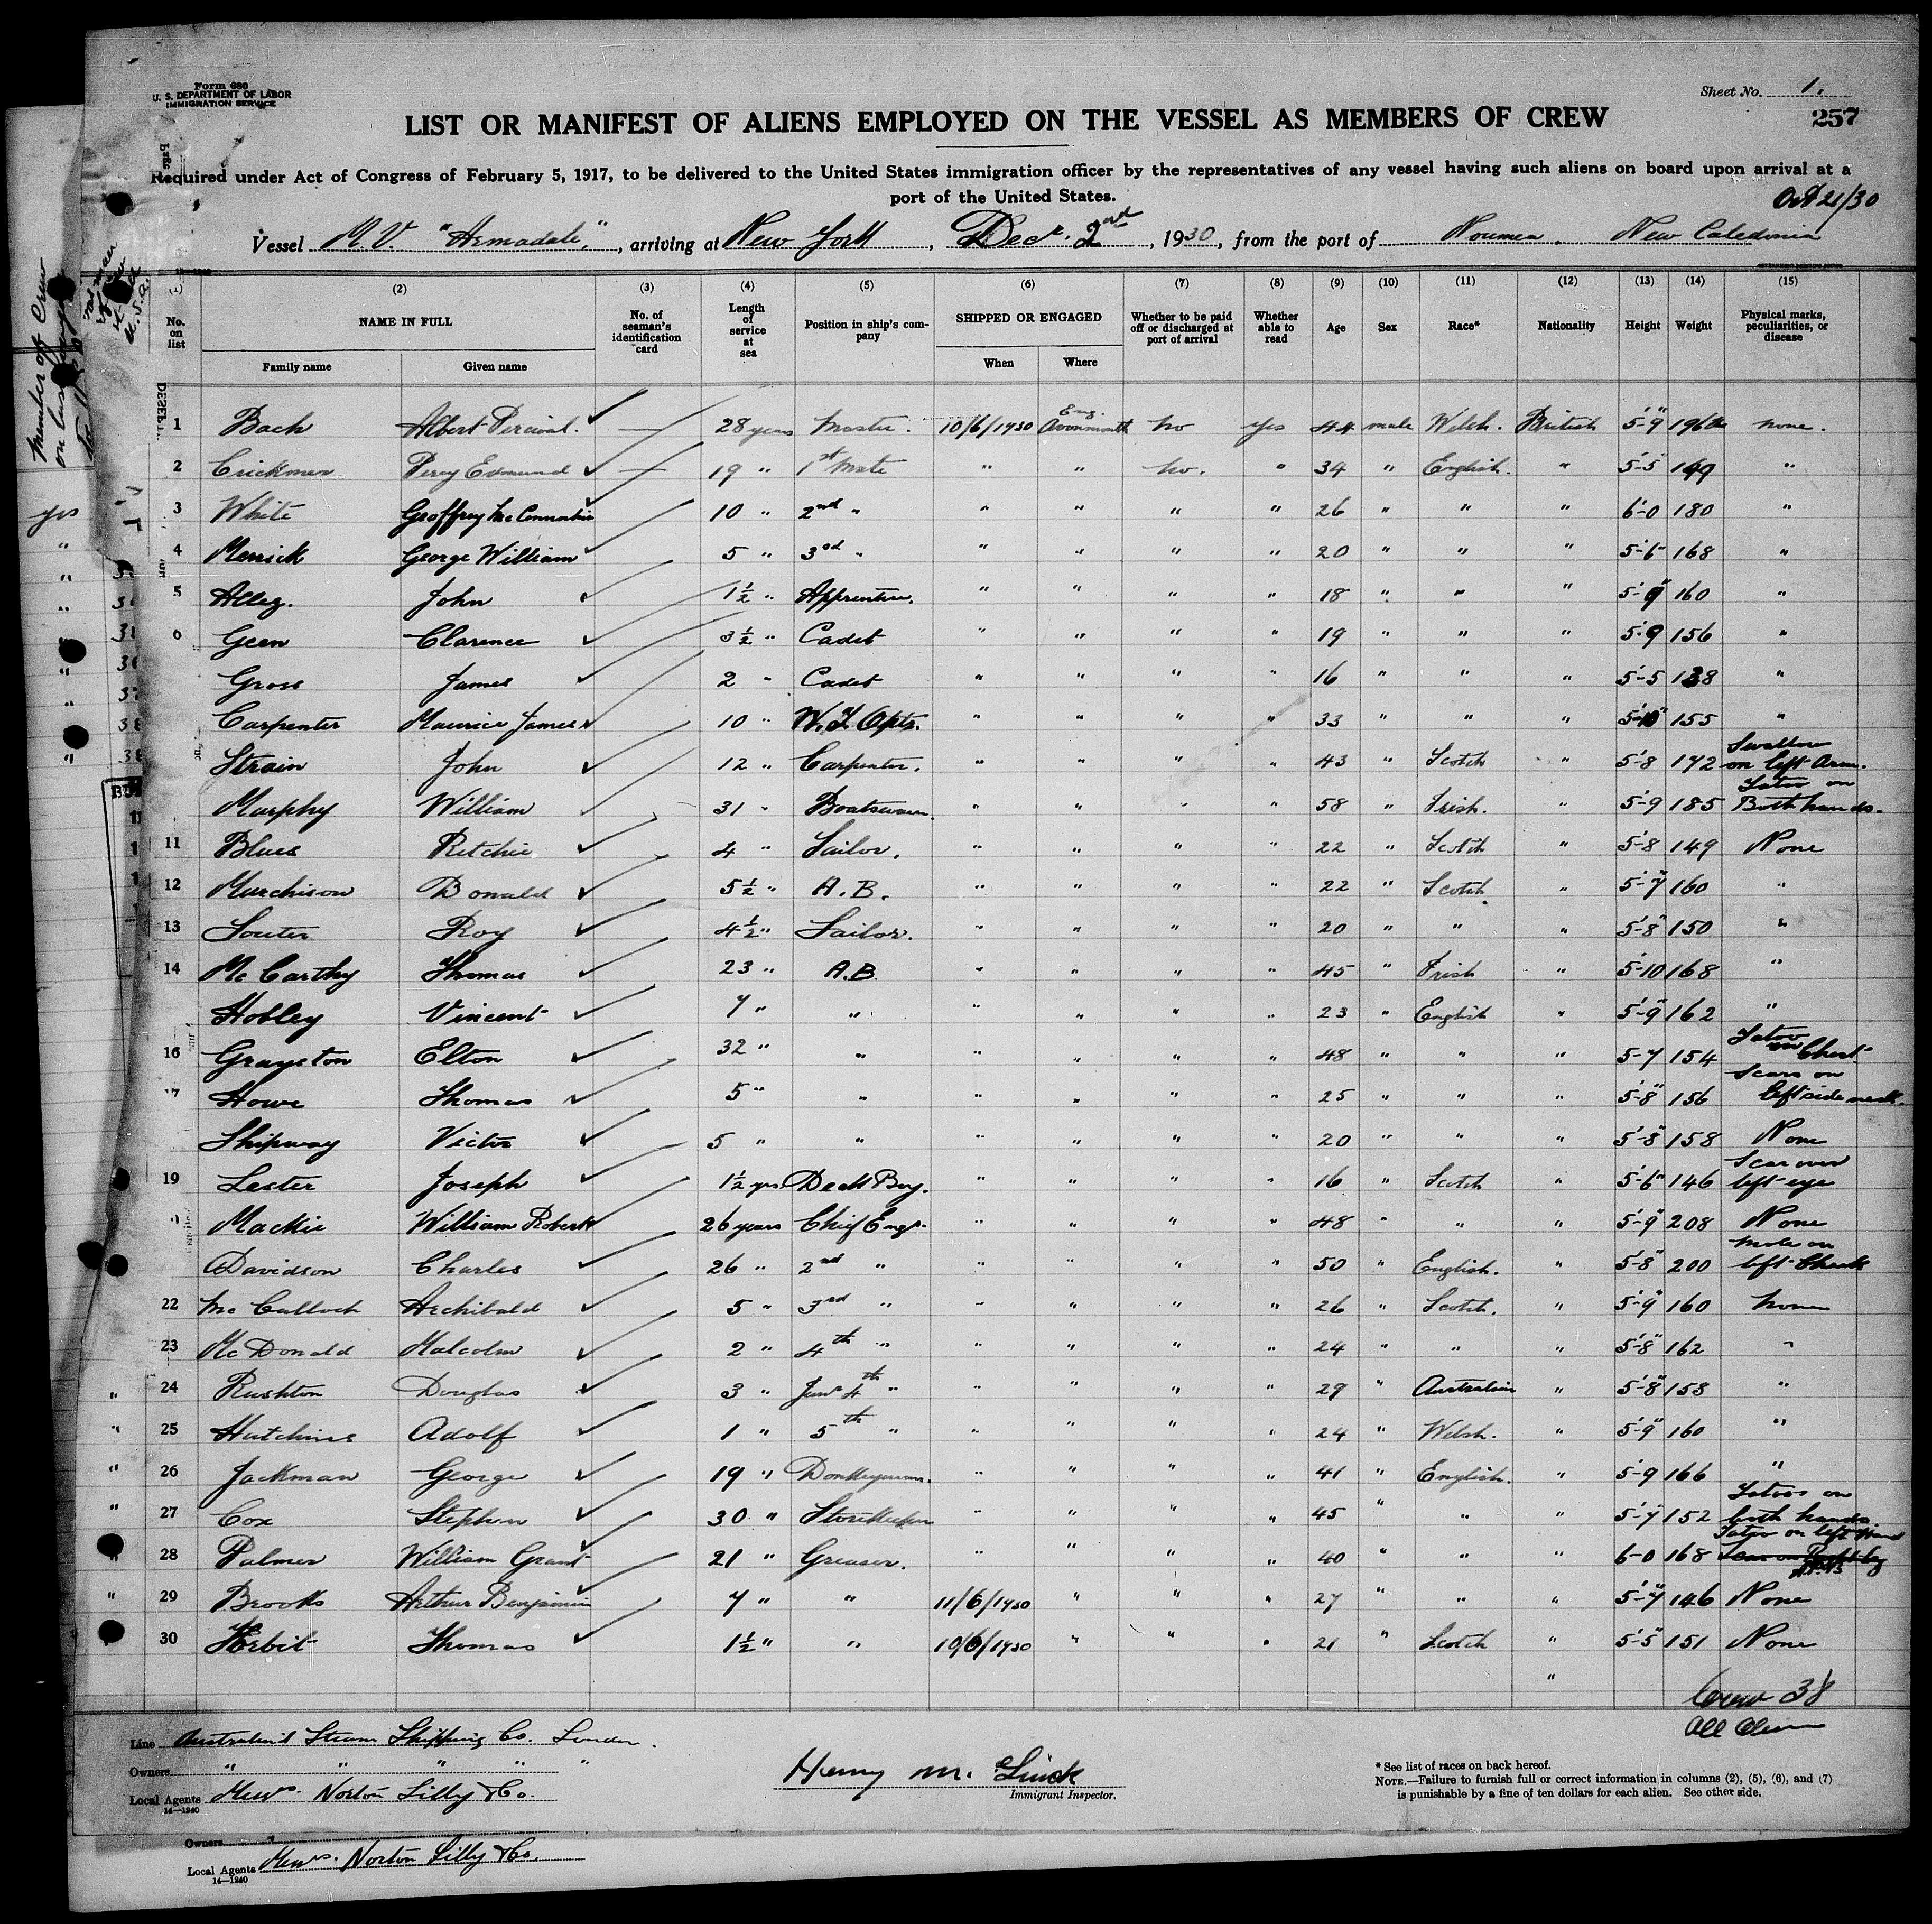 Form 680
U. S. DEPARTMENT OF LABOR
IMMIGRATION SERVICE
Sheet No. 1.
257
LIST OR MANIFEST OF ALIENS EMPLOYED ON THE VESSEL AS MEMBERS OF CREW
Required under Act of Congress of February 5, 1917, to be delivered to the United States immigration officer by the representatives of any vessel having such aliens on board upon arrival at a
port of the United States.
Vessel M.V. "Armadale", arriving at New York, Decr. 2nd, 1930, from the port of Noumea. New Caledonia
(1) (2) (3) (4) (5) (6) (7) (8) (9) (10) (11) (12) (13) (14) (15)
No. on list NAME IN FULL Family name Given name No. of seaman's identification card Length of service at sea Position in ship's company SHIPPED OR ENGAGED When Where Whether to be paid off or discharged at port of arrival Whether able to read Age Sex Race* Nationality Height Weight Physical marks, peculiarities, or disease
1 Bach Albert Percival. — 28 years Master. 10/6/1930 Eng. Avonmouth No yes 44 male Welsh. British 5'-9" 196 lbs none.
2 Crickmer Percy Edmund — 19 " 1st Mate " " No. " 34 " English. " 5'-5" 149 "
3 White Geoffrey 10 " 2nd " " " " " 26 " " " 6'-0 180 "
4 Merrick George William 5 " 3rd " " " " " 20 " " " 5'-6" 168 "
5 John 1½ " Apprentice. " " " " 18 " " " 5'-9" 160 "
6 Geen Clarence 3½ " Cadet " " " " 19 " " " 5'-9 156 "
Gross James 2 " Cadet " " " " 16 " " " 5'-5 138 "
Carpenter Maurice James 10 " W.T. Optr. " " " " 33 " " " 5'-10" 155 "
Strain John 12 " Carpenter. " " " " 43 " Scotch " 5'-8 172 Swallow on left Arm.
Murphy William 31 " Boatswain. " " " " 58 " Irish. " 5'-9 185 Tatoo on Both hands.
11 Blues Ritchie 4 " Sailor. " " " " 22 " Scotch " 5'-8 149 None
12 Murchison Donald 5½ " A.B. " " " " 22 " Scotch " 5'-7" 160 "
13 Souter Roy 4½ " Sailor. " " " " 20 " " " 5'-8" 150 "
14 McCarthy Thomas 23 " A.B. " " " " 45 " Irish " 5'-10 168 "
Hobley Vincent 7 " " " " " " 23 " English " 5'-9" 162 "
16 Grayston Elton 32 " " " " " " 48 " " " 5-7 154 Tatoo on Chest
17 Howe Thomas 5 " " " " " " 25 " " " 5'-8" 156 Scars on left side neck.
Shipway Victor 5 " " " " " " 20 " " " 5'-8" 158 None
19 Lester Joseph 1½ yrs Deck Boy. " " " " 16 " Scotch " 5'-6" 146 Scar over left eye
Mackie William Robert 26 years Chief Engr. " " " " 48 " " " 5'-9" 208 None
Davidson Charles 26 " 2nd " " " " " 50 " English. " 5'-8" 200 Mole on left Cheek
22 McCulloch Archibald 5 " 3rd " " " " " 26 " Scotch. " 5'-9" 160 None
23 McDonald Malcolm 2 " 4th " " " " " 24 " " " 5'-8" 162 "
24 Rushton Douglas 3 " Junr 4th " " " " " 29 " Australian " 5'-8" 158 "
25 Hutchins Adolf 1 " 5th " " " " " 24 " Welsh. " 5'-9" 160 "
26 Jackman George 19 " Donkeyman. " " " " 41 " English. " 5'-9 166 "
27 Cox Stephen 30 " Storekeeper " " " " 45 " " " 5'-7" 152 Tatoos on both hands
28 Palmer William Grant 21 " Greaser. " " " " 40 " " " 6-0 168 Tatoo on left Hand
29 Brooks Arthur Benjamin 7 " " 11/6/1930 " " " 27 " " " 5'-7" 146 None
30 Thomas 1½ " " 10/6/1930 " " " 21 " Scotch " 5'-5" 151 None
"
Crew 38
All Clear
Line Australind Steam Shipping Co. London.
Owners " " " " "
Local Agents Messrs. Norton Lilly & Co.
14—1240
Henry M.
Immigrant Inspector.
* See list of races on back hereof.
NOTE.—Failure to furnish full or correct information in columns (2), (5), (6), and (7)
is punishable by a fine of ten dollars for each alien. See other side.
Owners
Local Agents Messrs. Norton Lilly & Co.
14—1240